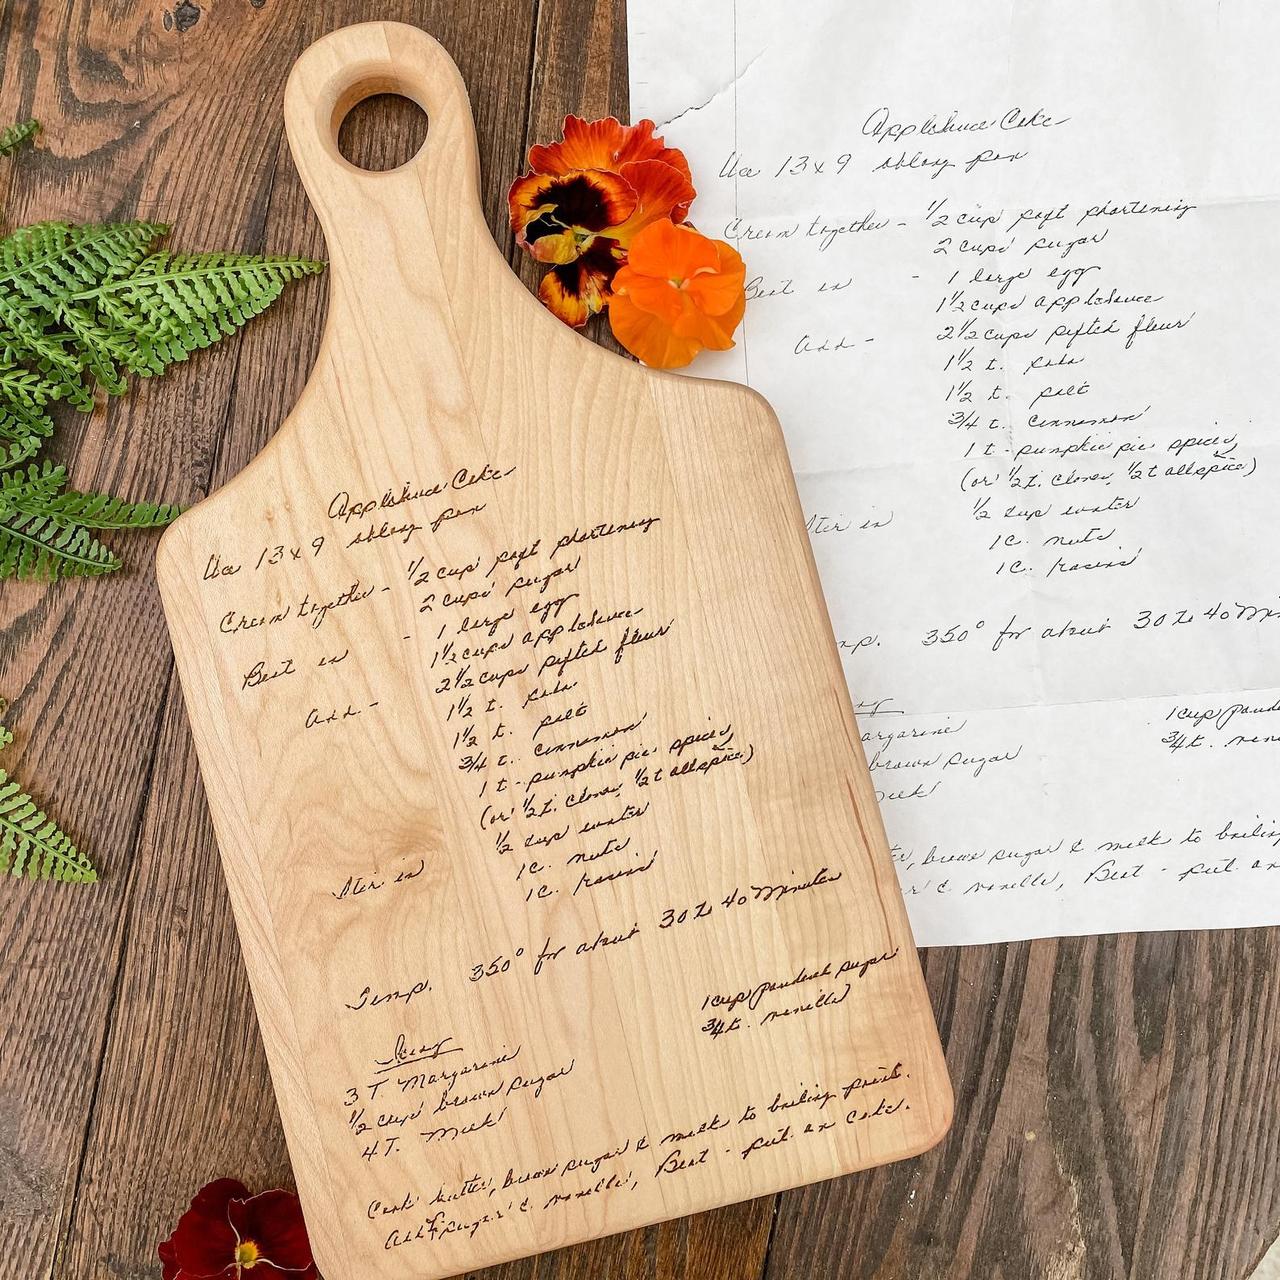 Applesauce Cake
Use 13x9 oblong pan
Cream together - 1/2 cup soft shortening
2 cups sugar
Beat in - 1 large egg
1 1/2 cups applesauce
Add - 2 1/2 cups sifted flour
1 1/2 t. soda
1 1/2 t. salt
3/4 t. cinnamon
1 t - pumpkin pie spices
(or 1/2 t. cloves, 1/2 t allspice)
1/2 cup water
Stir in 1C. nuts
1C. rasins
Temp. 350° for about 30 to 40 Minutes
Icing
3 T. Margarine
1/2 cup brown sugar
4 T. Milk
1 cup powdered sugar
3/4 t. vanilla
Cook butter, brown sugar & milk to boiling point.
Add sugar & vanilla, Beat - put on cake.
Applesauce Cake
Use 13x9 oblong pan
Cream together - 1/2 cup soft shortening
2 cups sugar
Beat in - 1 large egg
1 1/2 cups applesauce
Add - 2 1/2 cups sifted flour
1 1/2 t. soda
1 1/2 t. salt
3/4 t. cinnamon
1 t - pumpkin pie spices
(or 1/2 t. cloves, 1/2 t allspice)
1/2 cup water
Stir in 1C. nuts
1C. rasins
mp. 350° for about 30 to 40 Min
ng
argarine
brown sugar
Milk
1 cup powde
3/4 t. vani
ter, brown sugar & milk to boiling
ar & vanilla, Beat - put on